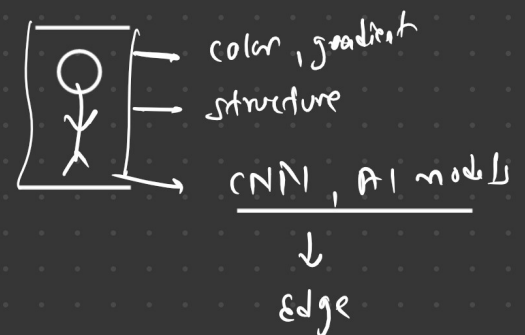 color, gradient
structure
CNN, AI models
Edge